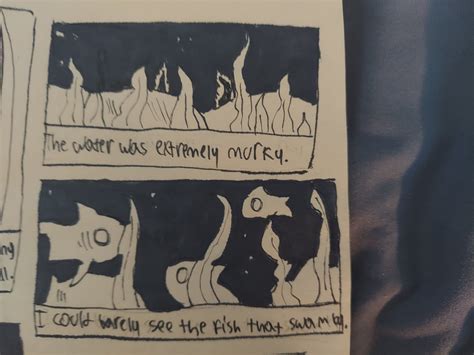 The water was extremely murky.
I could barely see the fish that swam by.